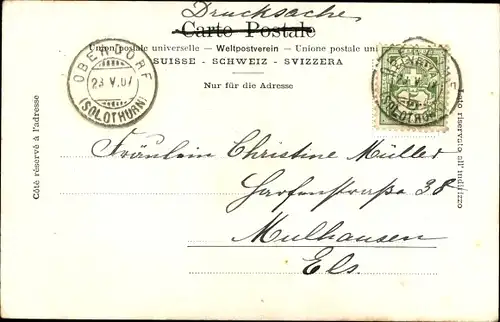 Drucksache
Carte Postale
Union postale universelle — Weltpostverein — Unione postale uni
SUISSE - SCHWEIZ - SVIZZERA
Nur für die Adresse
OBERDORF
23 V. 07
(SOLOTHURN)
OBERDORF
23 V
(SOLOTHURN)
Côté réservé à l'adresse
Lato riservato all' indirizzo
Fräulein Christine Müller
Harfenstraße 38
Mulhausen
Els.